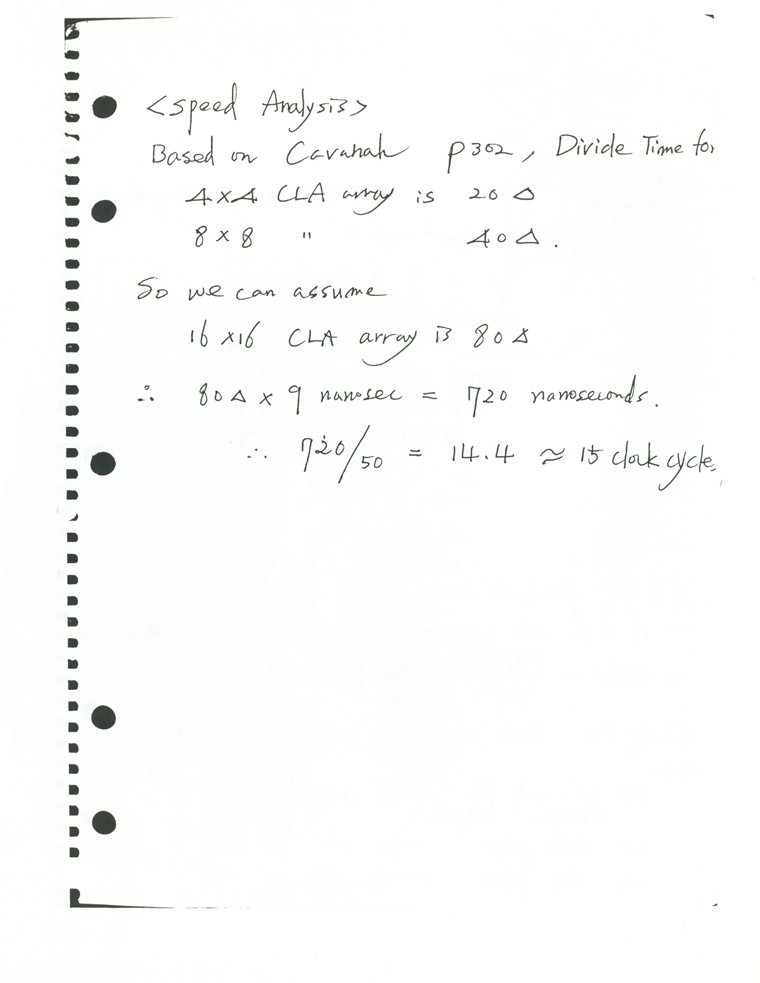 <Speed Analysis>
Based on Cavanah p302, Divide Time for
4×4 CLA array is 20 Δ
8 × 8 " 40 Δ.
So we can assume
16 ×16 CLA array is 80 Δ
∴ 80 Δ × 9 nanosec = 720 nanoseconds.
∴ 720/50 = 14.4 ≈ 15 clock cycle.